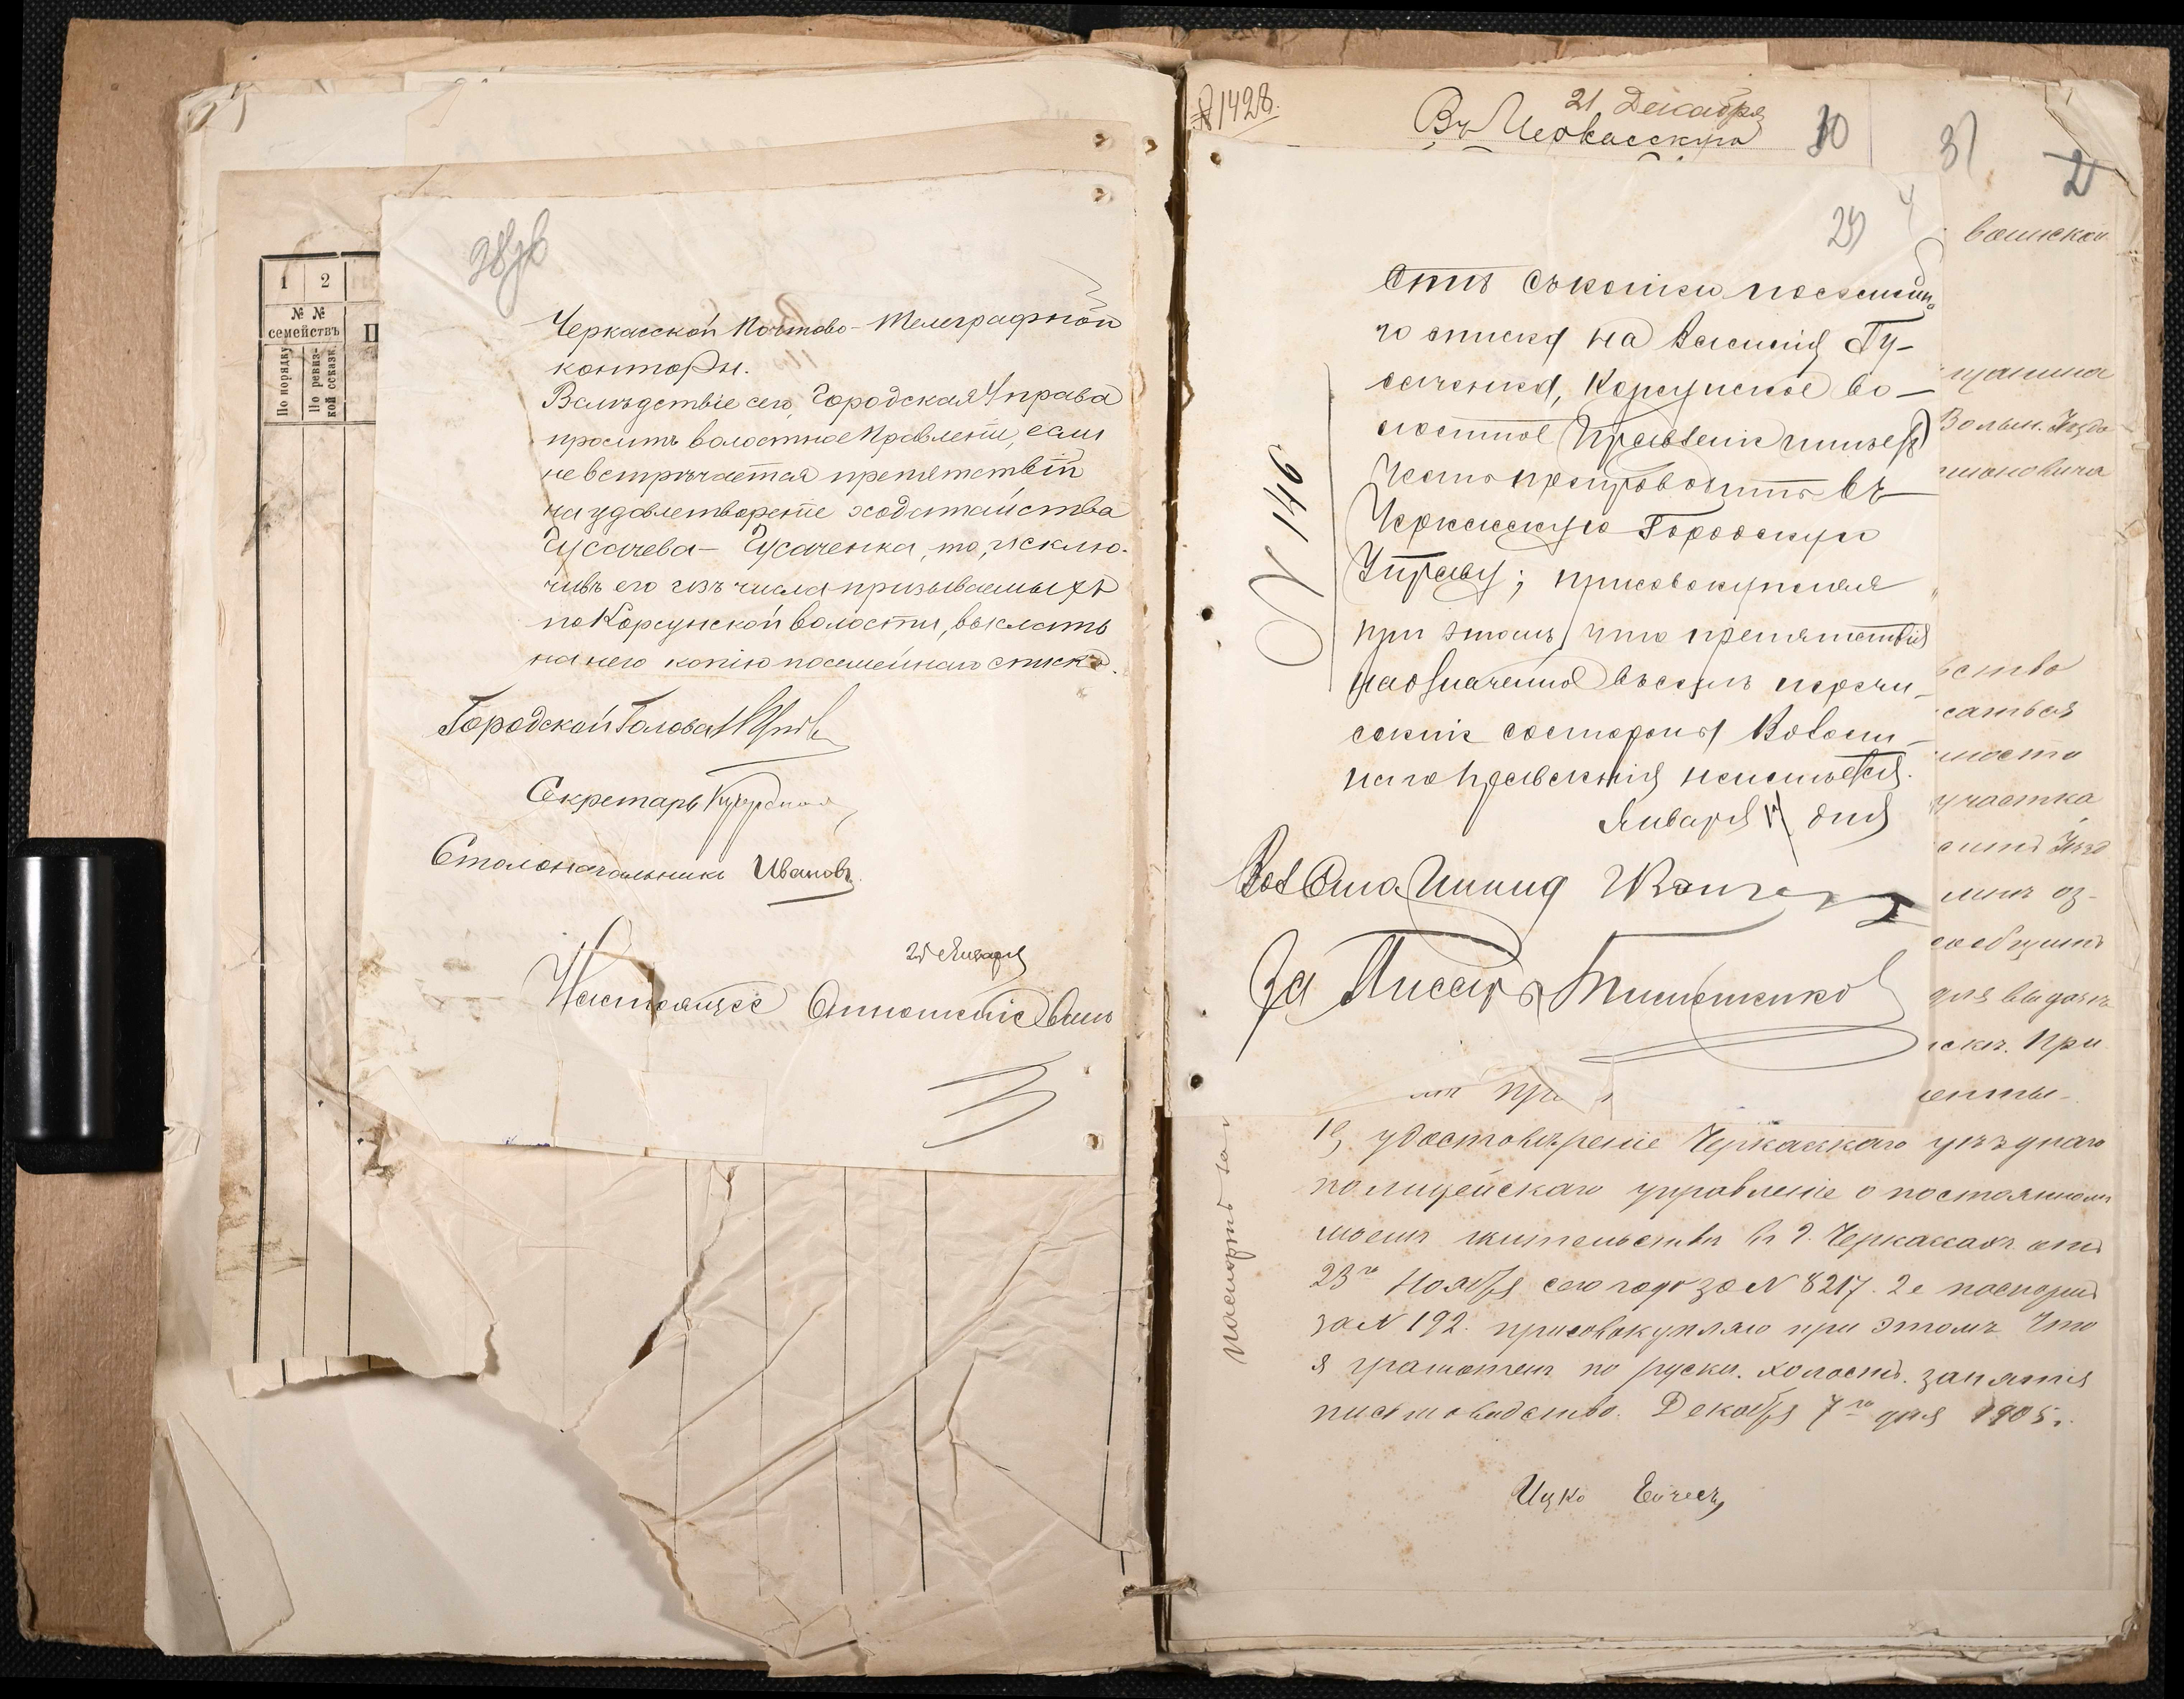 1 2
№ №
семействъ
По порядку
По ревиз-
кой сказк.
П
28 об
Черкасской Почтово-Телеграфной
конторы.
Вслѣдствіе сего, Городская Управа
проситъ волостное Правленіе, если
не встрѣчается препятствій
на удовлетвореніе ходатайства
Гусачева - Гусаченка, то, исклю-
чивъ его изъ числа призываемыхъ
по Корсунской волости, выслать
на него копію посемейнаго списка.
Городской Голова
Секретарь
Столоначальникъ Ивановъ
Января
Настоящее Отношеніе вмѣ
№ 1428.
21 Декабря
Въ Черкасскую
30
31
2
29
воинской
стѣ съ копіей посемейна
го списка на Василія Гу-
саченка, Корсунское Во-
лостное Правленіе имѣетъ
честь препроводить въ
Черкасскую Городскую
Управу; присовокупляя
при этомъ, что препятствія
на означенное въ семъ перечи-
сленіе со стороны Волост-
наго Правленія не имѣется.
Января 17 дня
№ 146
Вол Старшина
За Писаря
щанина
участка
сообщить
для выдачи
При
1е, удостовѣреніе Черкасскаго уѣзднаго
полицейскаго управленіе о постоянномъ
моемъ жительствѣ въ г. Черкассахъ отъ
23го Ноября сего года за № 8217. 2е паспортъ
за № 192. присовокупляю при этомъ что
я грамотенъ по руски. холостъ. занятія
письмоводство. Декабря 7го дня 1905.
Ицко
паспортъ